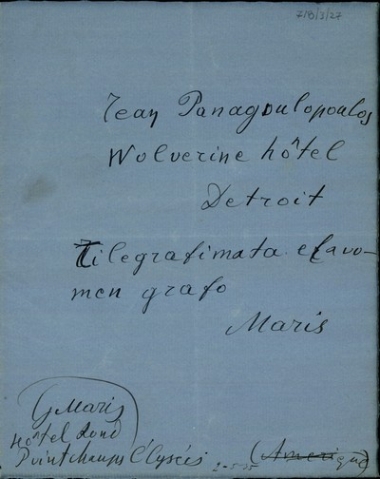 718/3/27
Jean Panagoulopoulos
Wolverine hôtel
Detroit
Tilegrafimata elavo-
men grafo
Maris
G Maris
Hôtel Rond
Point champs Elysées
2-5-25
(Amerique)